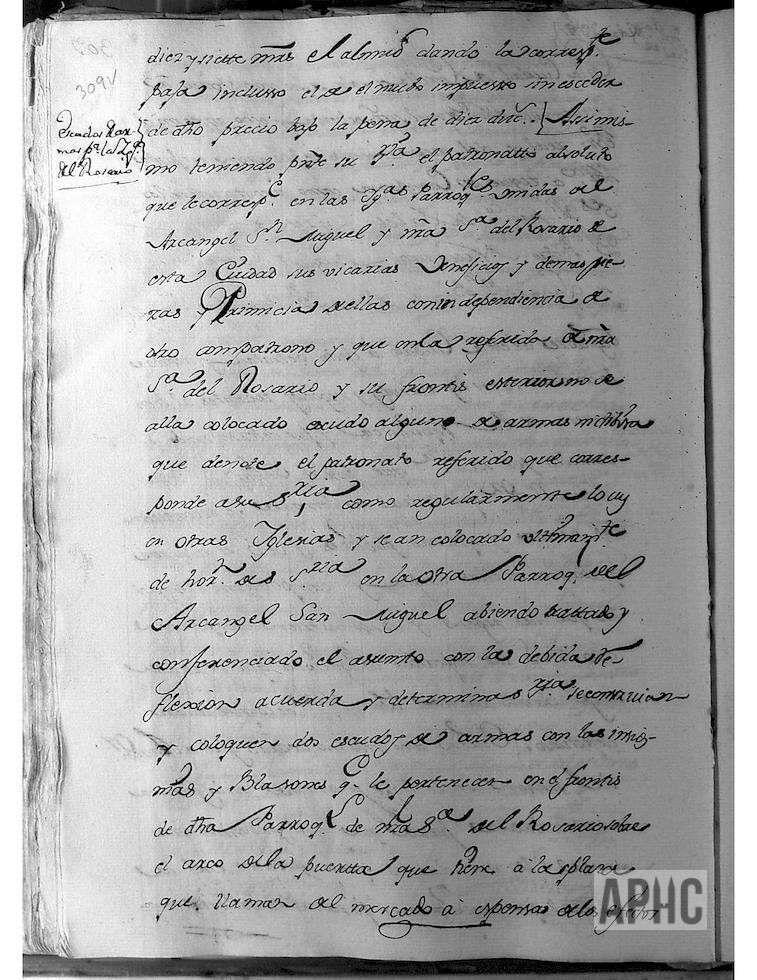 309V
Escudos de Ar-
mas pª. la Ygª.
del Rosario
diez y siette mrs el almud dando la corresp.te
paja inclusso el de el nuebo impuesto sin exceder
de dho precio bajo la pena de diez duc.s. Asimis-
mo teniendo pnte su Sª. el patronatto absoluto
que le corresp.e en las Ygªs Parroq.les unidas del
Arcangel Sn. Miguel y nra Sª. del Rosario de
esta Ciudad sus vicarias Veneficios y demas pie-
zas y Primicia de ellas con independiencia de
otro compatrono y que en la referida de nra
Sª. del Rosario y su frontis esterior no se
alla colocado escudo alguno de armas ni
que denote el patronato referido que corres-
ponde a su Sria como regularmente lo ay
en otras Yglesias y se an colocado ultimam.te
de hor.n de S. Sria en la otra Parroq. del
Arcangel San Miguel abiendo trattado y
conferenciado el asunto con la debida re-
flexion acuerda y determina S. ria se construian
y coloquen dos escudos de armas con las mis-
mas y Blasones q. le pertenecen en el frontis
de dha Parroq.l de nra Sª. del Rosario sobre
el arco de la puertta que tiene à la plaza
que llaman del mercado à espensas de los efectos
APHC